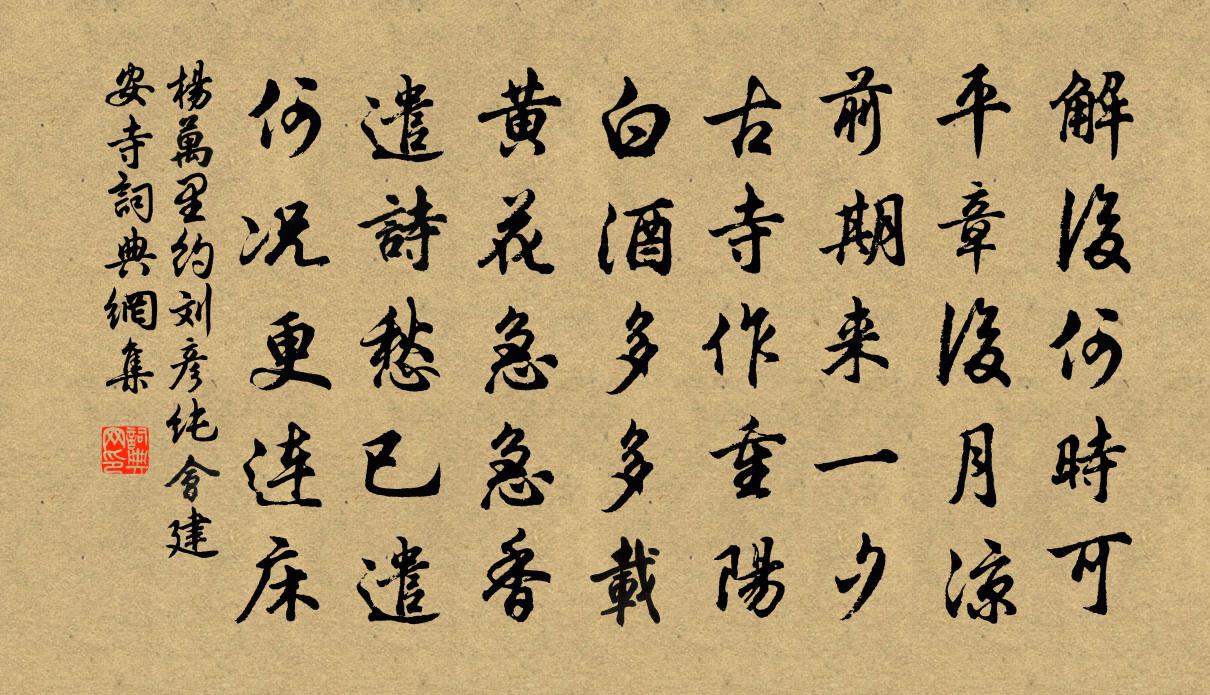 解後何時可
平章後月涼
前期来一夕
古寺作重陽
白酒多多載
黄花急急香
遣詩愁已遣
何况更連床
楊萬里約刘彦纯會建
安寺詞典網集
詞典
网印